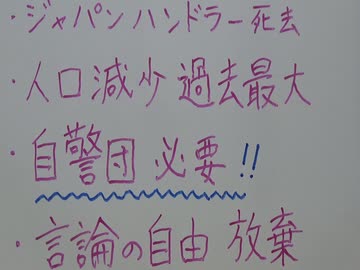 ・ジャパンハンドラー死去
・人口減少 過去最大
・自警団 必要!!
・言論の自由 放棄